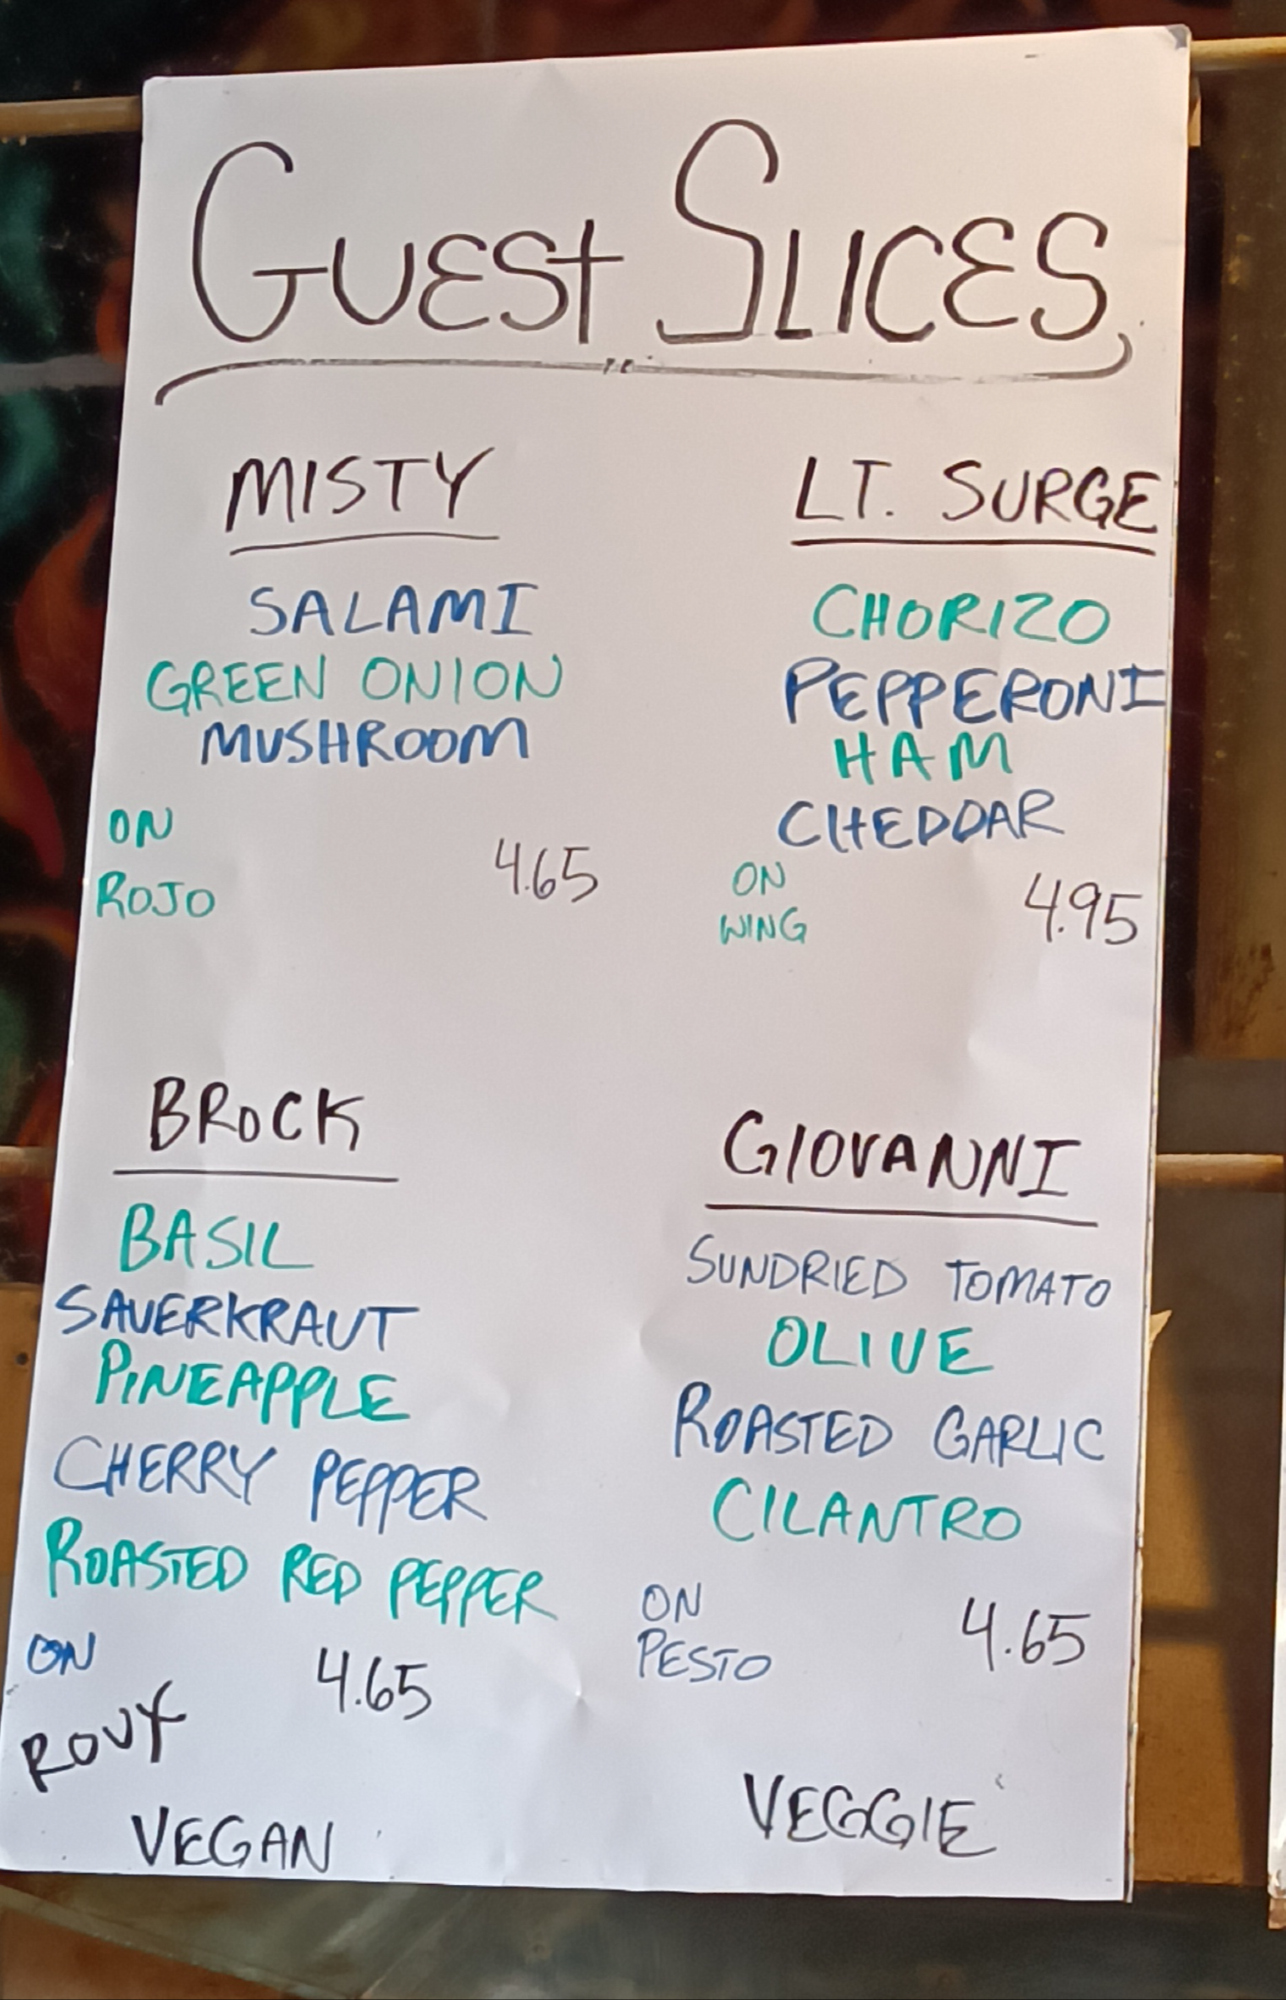 GUEST SLICES
MISTY
SALAMI
GREEN ONION
MUSHROOM
ON
ROJO
4.65
LT. SURGE
CHORIZO
PEPPERONI
HAM
CHEDDAR
ON
WING
4.95
BROCK
BASIL
SAUERKRAUT
PINEAPPLE
CHERRY PEPPER
ROASTED RED PEPPER
ON
ROUX
4.65
VEGAN
GIOVANNI
SUNDRIED TOMATO
OLIVE
ROASTED GARLIC
CILANTRO
ON
PESTO
4.65
VEGGIE